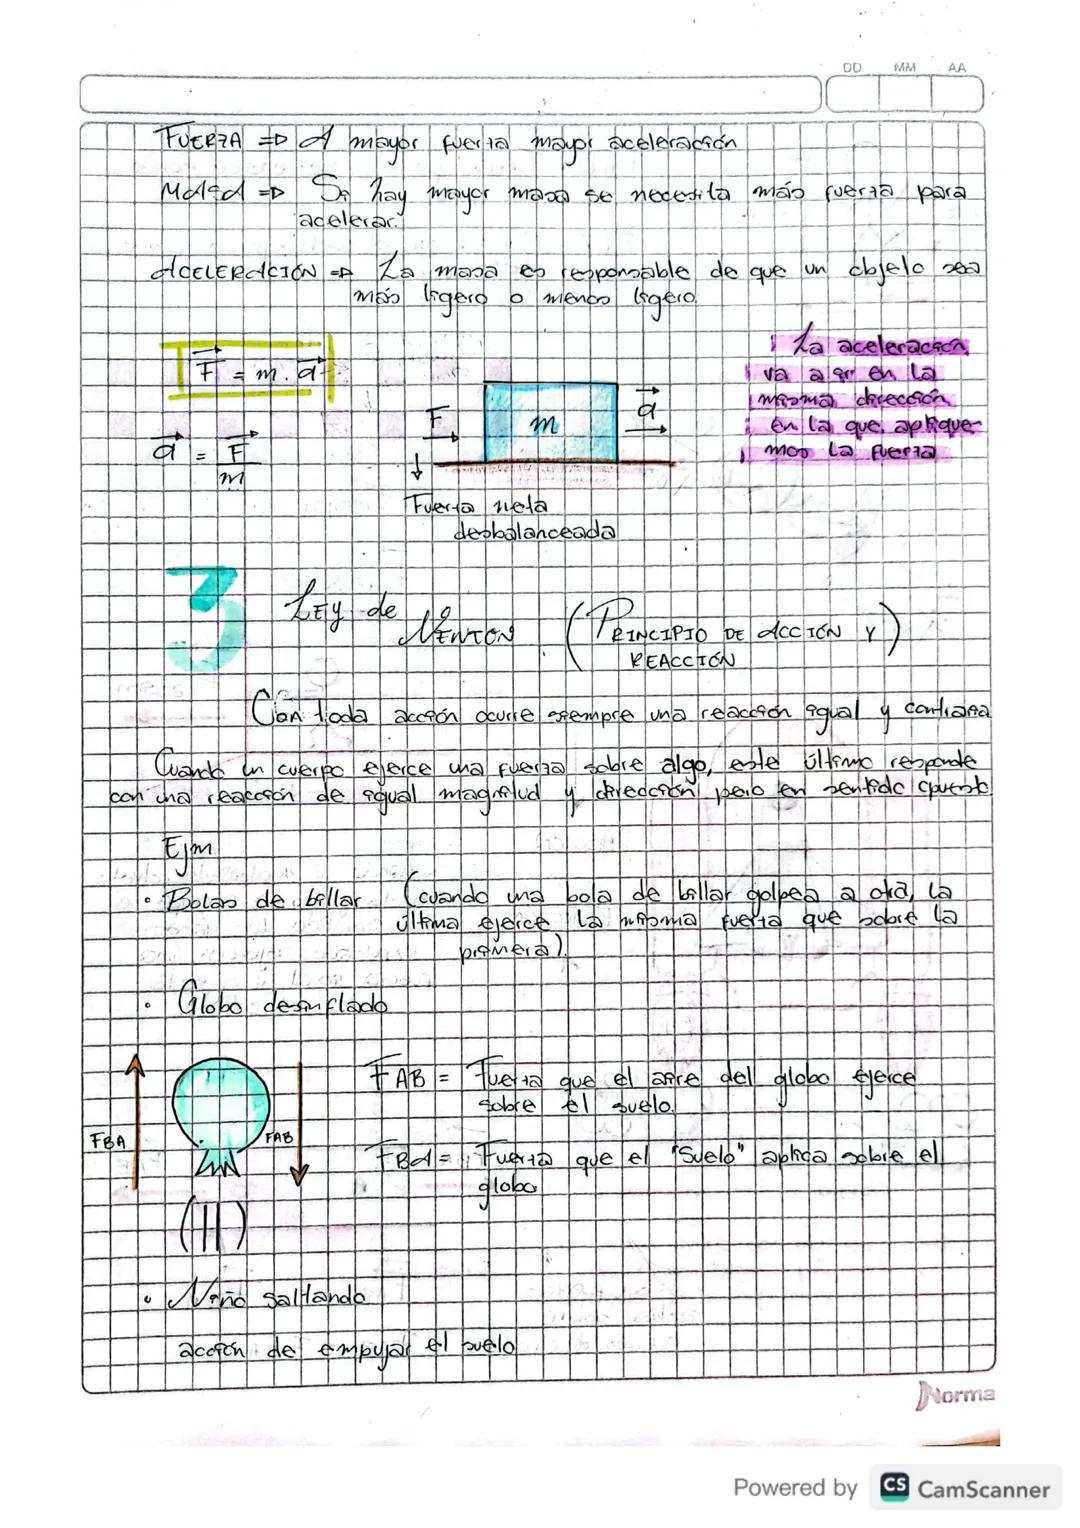 DD MM AA
FUERZA => A mayor fuerza mayor aceleración
MASA => Si hay mayor masa se necesita más fuerza para
acelerar.
ACELERACIÓN => La masa es responsable de que un objeto sea
más ligero o menos ligero.
F = m . a
a = F
m
F
m
a
Fuerza neta
desbalanceada
La aceleración
va a ir en la
misma dirección
en la que aplique-
mos la fuerza
3 LEY de NEWTON (PRINCIPIO DE ACCIÓN Y
REACCIÓN)
Con toda acción ocurre siempre una reacción igual y contraria
Cuando un cuerpo ejerce una fuerza sobre algo, este último responde
con una reacción de igual magnitud y dirección pero en sentido opuesto
Ejm
• Bolas de billar (cuando una bola de billar golpea a otra, la
última ejerce la misma fuerza que sobre la
primera).
• Globo desinflado
FBA
FAB
FAB = Fuerza que el aire del globo ejerce
sobre el suelo.
FBA = Fuerza que el "suelo" aplica sobre el
globo
• Niño saltando
acción de empujar el suelo
Norma
Powered by CS CamScanner